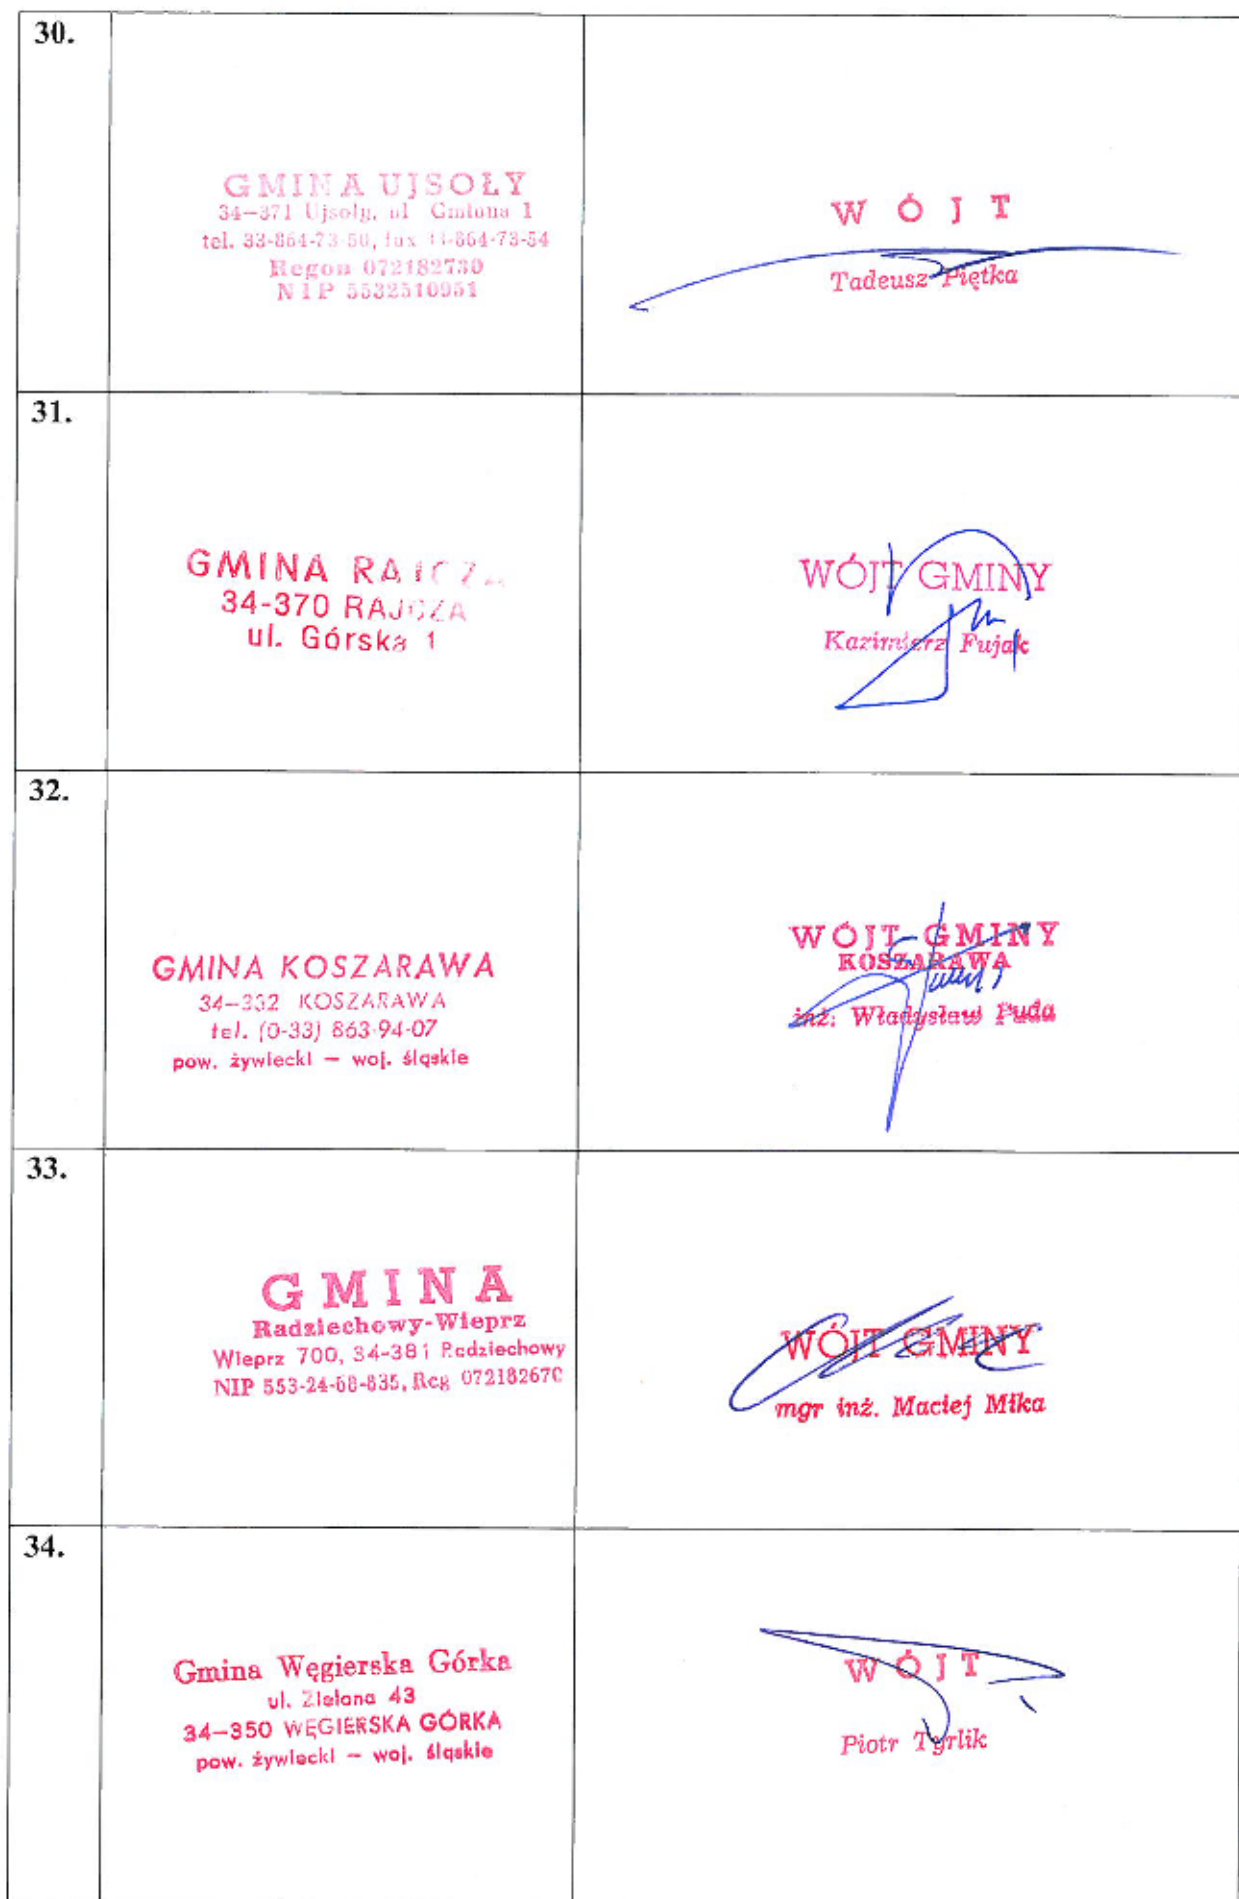 30.
GMINA UJSOŁY
34-371 Ujsoły, ul Gminna 1
tel. 33-864-73-50, fax 33-864-73-54
Regon 072182730
NIP 5532510951
WÓJT
Tadeusz Piętka
31.
GMINA RAJCZA
34-370 RAJCZA
ul. Górska 1
WÓJT GMINY
Kazimierz Fujak
32.
GMINA KOSZARAWA
34-332 KOSZARAWA
tel. (0-33) 863-94-07
pow. żywiecki – woj. śląskie
WÓJT GMINY
KOSZARAWA
inż. Władysław Puda
33.
GMINA
Radziechowy-Wieprz
Wieprz 700, 34-381 Radziechowy
NIP 553-24-68-835, Reg 072182670
WÓJT GMINY
mgr inż. Maciej Mika
34.
Gmina Węgierska Górka
ul. Zielona 43
34-350 WĘGIERSKA GÓRKA
pow. żywiecki – woj. śląskie
WÓJT
Piotr Tyrlik